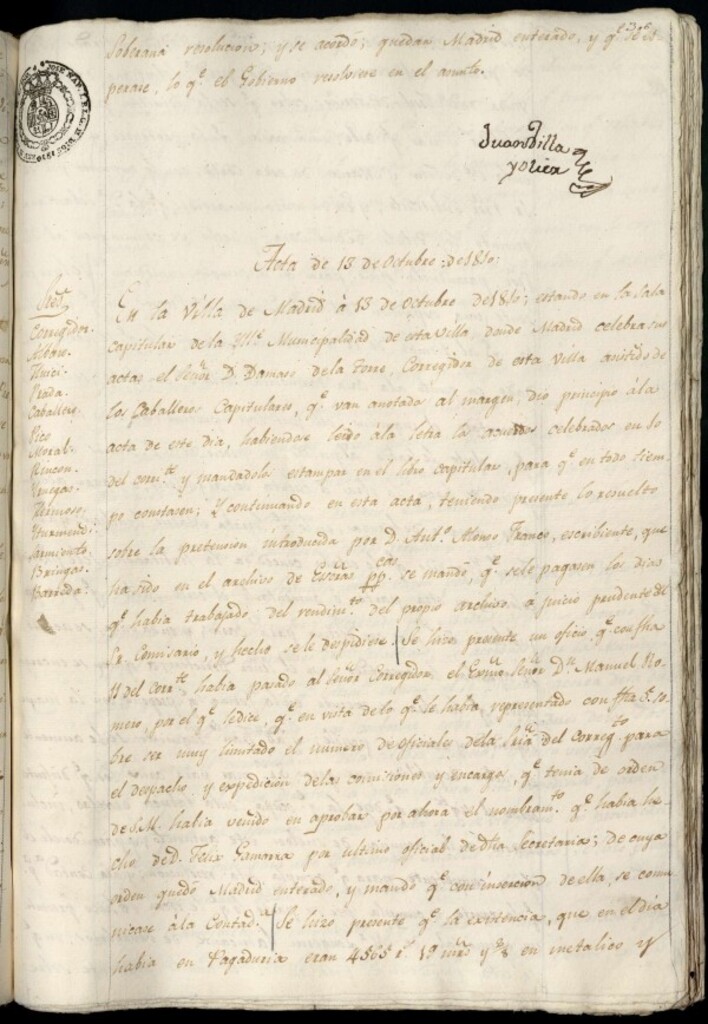 Soberana resolucion; y se acordó; quedar Madrid enterado, y q.e se es-
perase, lo q.e el Gobierno resolviese en el asunto.
Juan Villa
y Olier
Acta de 13 de Octubre: de 1810:
Sres.
Corregidor.
Prada.
Caballero.
Pico
Moral.
Rincon.
Venegas.
Hermoso.
Yturmendi.
Sarmiento.
Bringas.
Barrada.
En la Villa de Madrid à 13 de Octubre de 1810; estando en la sala
capitular de la Ill.e Municipalidad de esta villa, donde Madrid celebra sus
actas el señor D. Damaso de la Torre, Corregidor de esta villa asistido de
los Caballeros Capitulares, q.e van anotados al margen, dio principio à la
acta de este dia, habiendose leido à la letra los acuerdos celebrados en 10
del corr.te y mandadolos estampar en el libro capitular, para q.e en todo tiem-
po constasen; Y continuando en esta acta, teniendo presente lo resuelto
sobre la pretension introducida por D. Ant.o Alonso Franco, escribiente, que
ha sido en el archivo de Escrăs pp.cas se mandó, q.e se le pagasen los dias
q.e habia trabajado del rendim.to del propio archivo à juicio prudente del
Sr. Comisario, y hecho se le despidiese. Se hizo presente un oficio, q.e con fha
11 del corr.te habia pasado al Señor Corregidor, el Exmo. Señor D.n Manuel Ro-
mero, por el q.e le dice, q.e en vista de lo q.e le habia representado con fha so-
bre ser muy limitado el numero de oficiales de la Sria del Correg.to para
el despacho, y expedicion de las comisiones y encargos, q.e tenia de orden
de S.M. habia venido en aprobar por ahora el nombram.to q.e habia he-
cho de D. Felix Gamarra por ultimo oficial de dha Secretaria; de cuya
orden quedó Madrid enterado, y mandó q.e con insercion de ella, se comu-
nicase à la Contad.a Se hizo presente q.e la existencia, que en el dia
habia en Pagaduria eran 4565 r.s 19 mrs y en metalico y